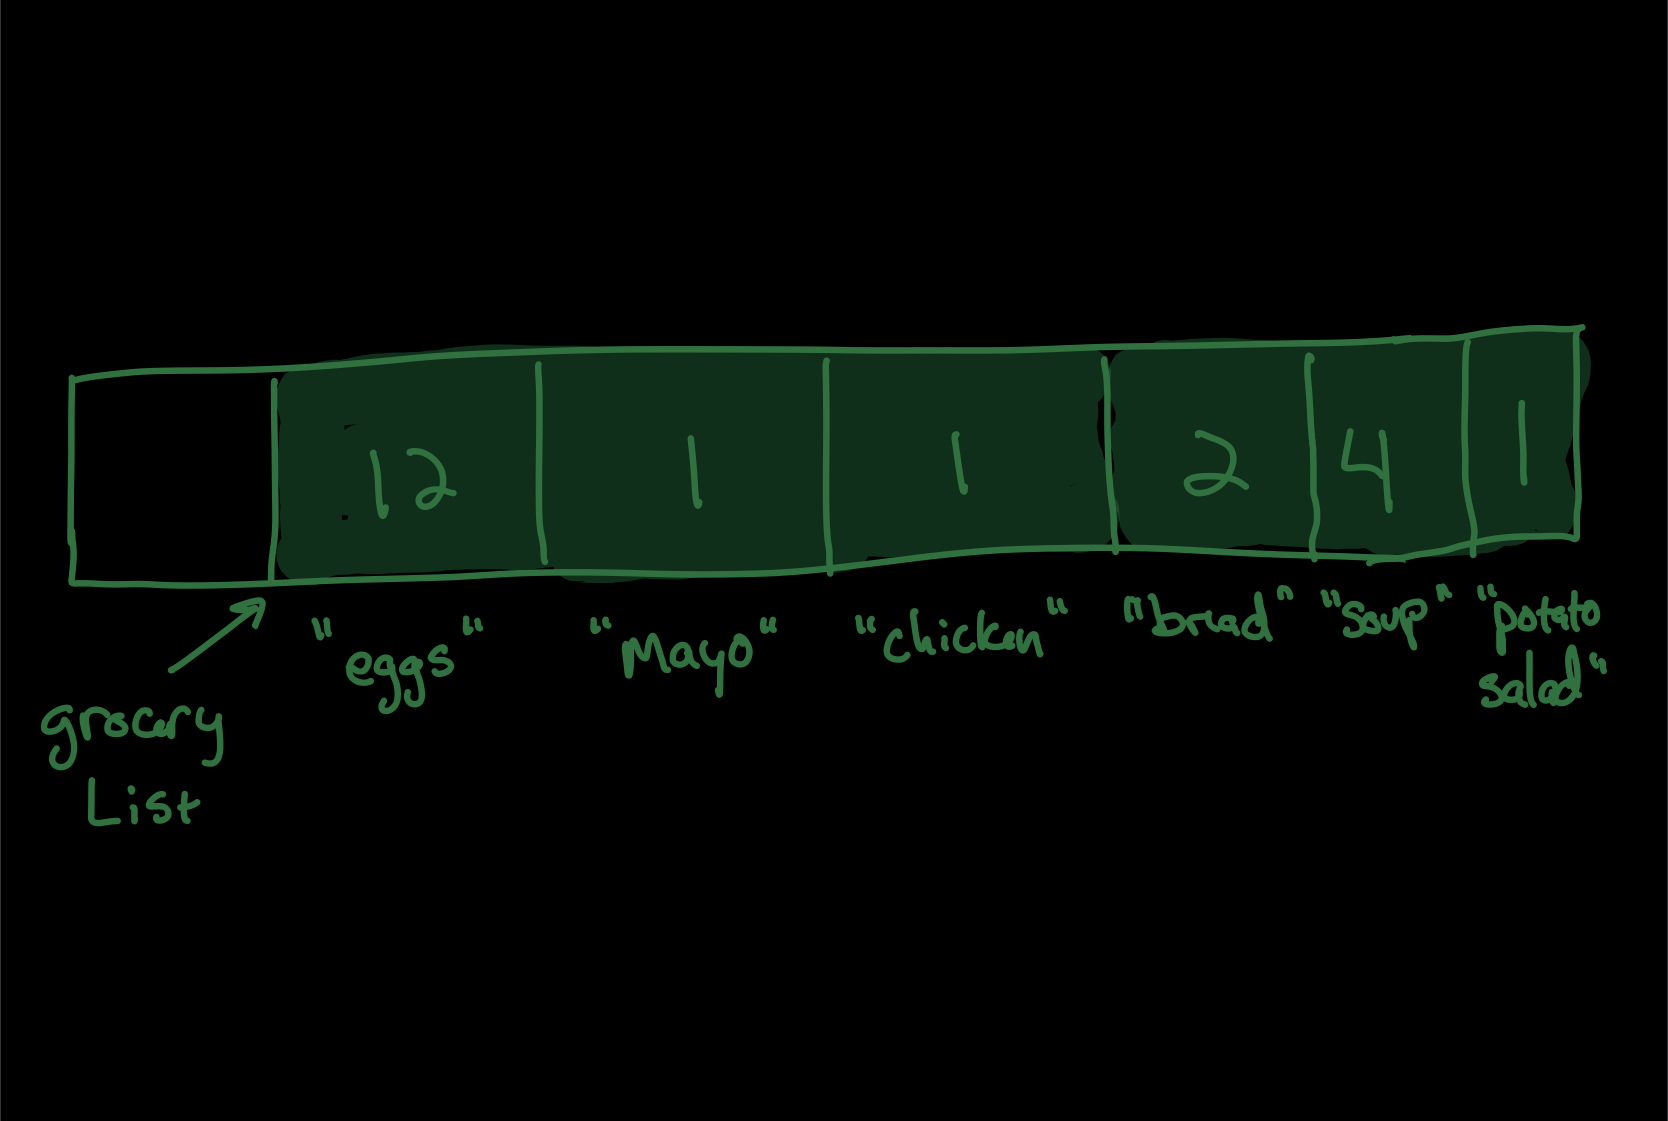 12 1 1 2 4 1
"eggs" "Mayo" "chicken" "bread" "soup" "potato
salad"
grocery
List